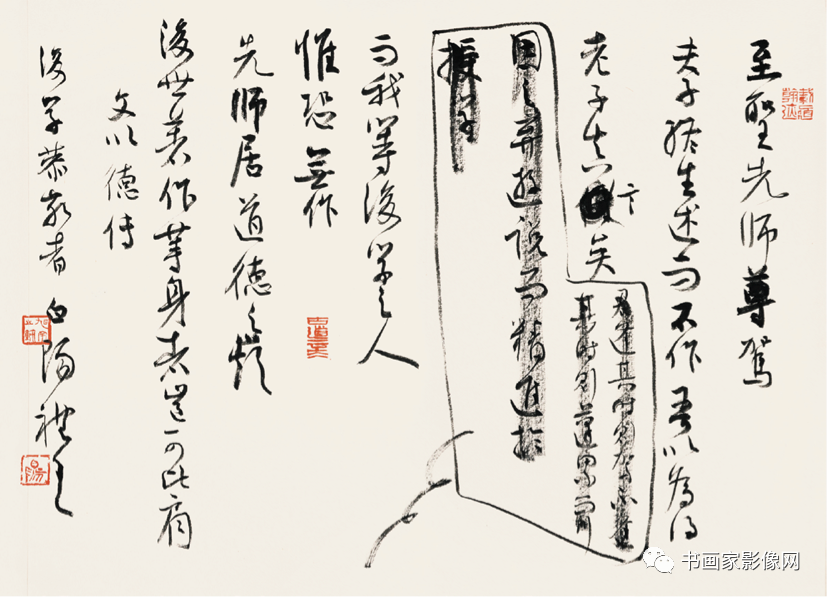 至聖先师尊驾
夫子终生述而不作吾以為得
老子真言矣
因之弃游说而精進於
而我等後学之人
惟恐無作
先师居道德之巅
後世著作等身者豈可比肩
文以德传
後学恭敬者白陽礼之
书画家影像网